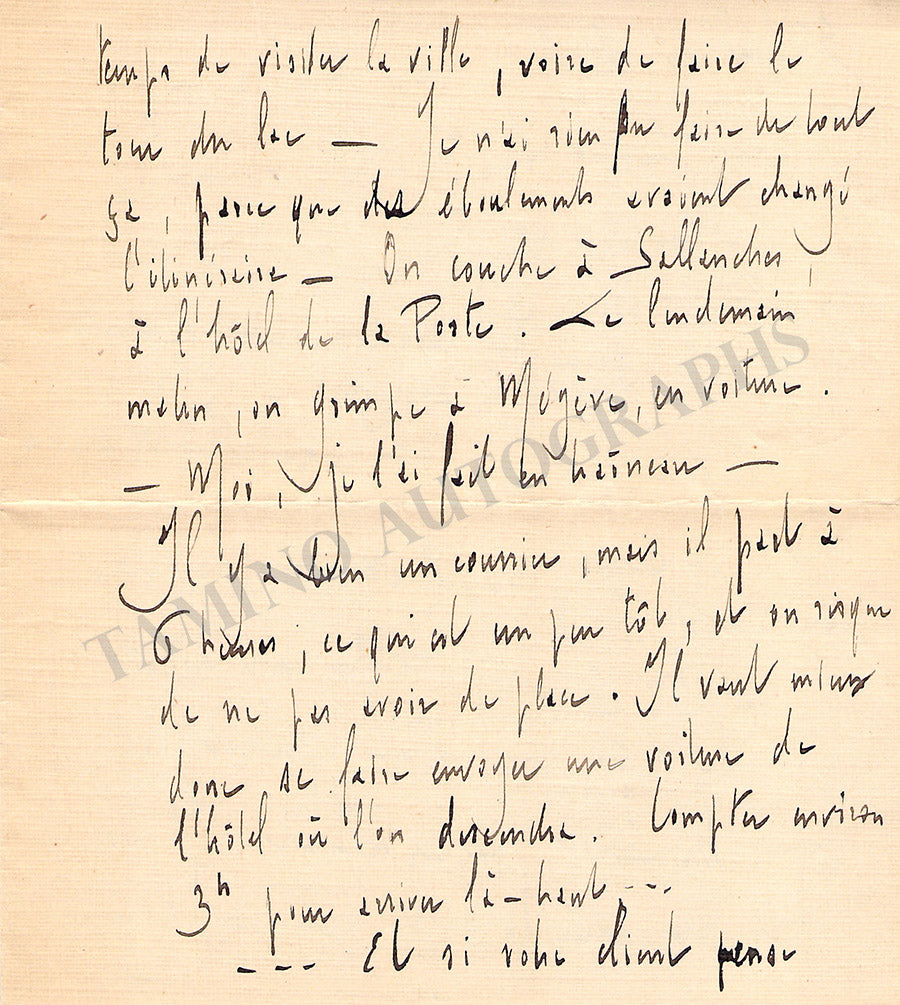 temps de visiter la ville, voire de faire le
tour du lac — Je n'ai rien pu faire de tout
ça, parce que des éboulements avaient changé
l'itinéraire — On couche à Sallanches,
à l'hôtel de la Poste. Le lendemain
matin, on grimpe à Mégève, en voiture.
— Moi, je l'ai fait en traîneau —
Il y a bien un courrier, mais il part à
6 heures, ce qui est un peu tôt, et on risque
de ne pas avoir de place. Il vaut mieux
donc se faire envoyer une voiture de
l'hôtel où l'on descendra. Compter environ
3h pour arriver là-haut ---
--- Et si votre client pense
TAMINO AUTOGRAPHS